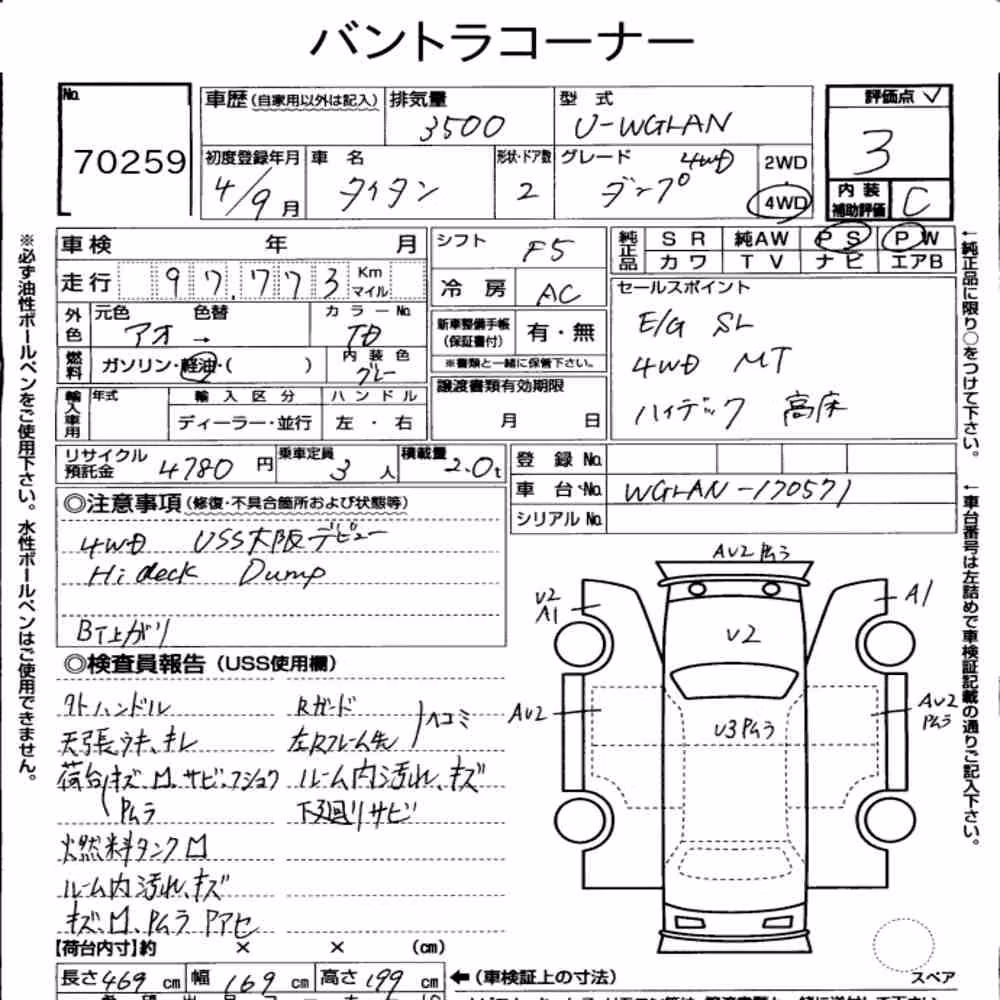 バントラコーナー
No.
70259
車歴(自家用以外は記入)
排気量
3500
型式
U-WGLAN
評価点 ✓
3
初度登録年月
4/9月
車名
タイタン
形状・ドア数
2
グレード
4WD
ダンプ
2WD
4WD
内装
補助評価
C
車検 年 月
走行 97,773 Km マイル
外色
元色 色替
アオ →
カラーNo.
TD
燃料
ガソリン・軽油・( )
内装色
グレー
輸入車用
年式
輸入区分
ディーラー・並行
ハンドル
左・右
シフト
F5
冷房
AC
新車整備手帳
(保証書付)
有・無
※書類と一緒に保管下さい。
譲渡書類有効期限
月 日
純正品
SR 純AW PS PW
カワ TV ナビ エアB
セールスポイント
E/G SL
4WD MT
ハイデック 高床
リサイクル
預託金
4780円
乗車定員
3人
積載量
2.0t
登録No.
車台No.
WGLAN-170571
シリアルNo.
◎注意事項(修復・不具合箇所および状態等)
4WD USS大阪デビュー
Hi deck Dump
BT上がり
◎検査員報告(USS使用欄)
外ハンドル
天張ウキ、キレ
荷台キズ、凹、サビ、フショク
Pムラ
燃料タンク凹
ルーム内汚れ、キズ
キズ、凹、Pムラ Pアセ
Rガード
左Rフレーム先
ヘコミ
ルーム内汚れ、キズ
下廻りサビ
AU2 Pムラ
U2
A1
A1
U2
AU2
U3Pムラ
AU2
Pムラ
スペア
【荷台内寸】約 × × (cm)
長さ469cm 幅169cm 高さ199cm
←(車検証上の寸法)
※必ず油性ボールペンをご使用下さい。水性ボールペンはご使用できません。
←純正品に限り○をつけて下さい。
←車台番号は左詰めで車検証記載の通りご記入下さい。